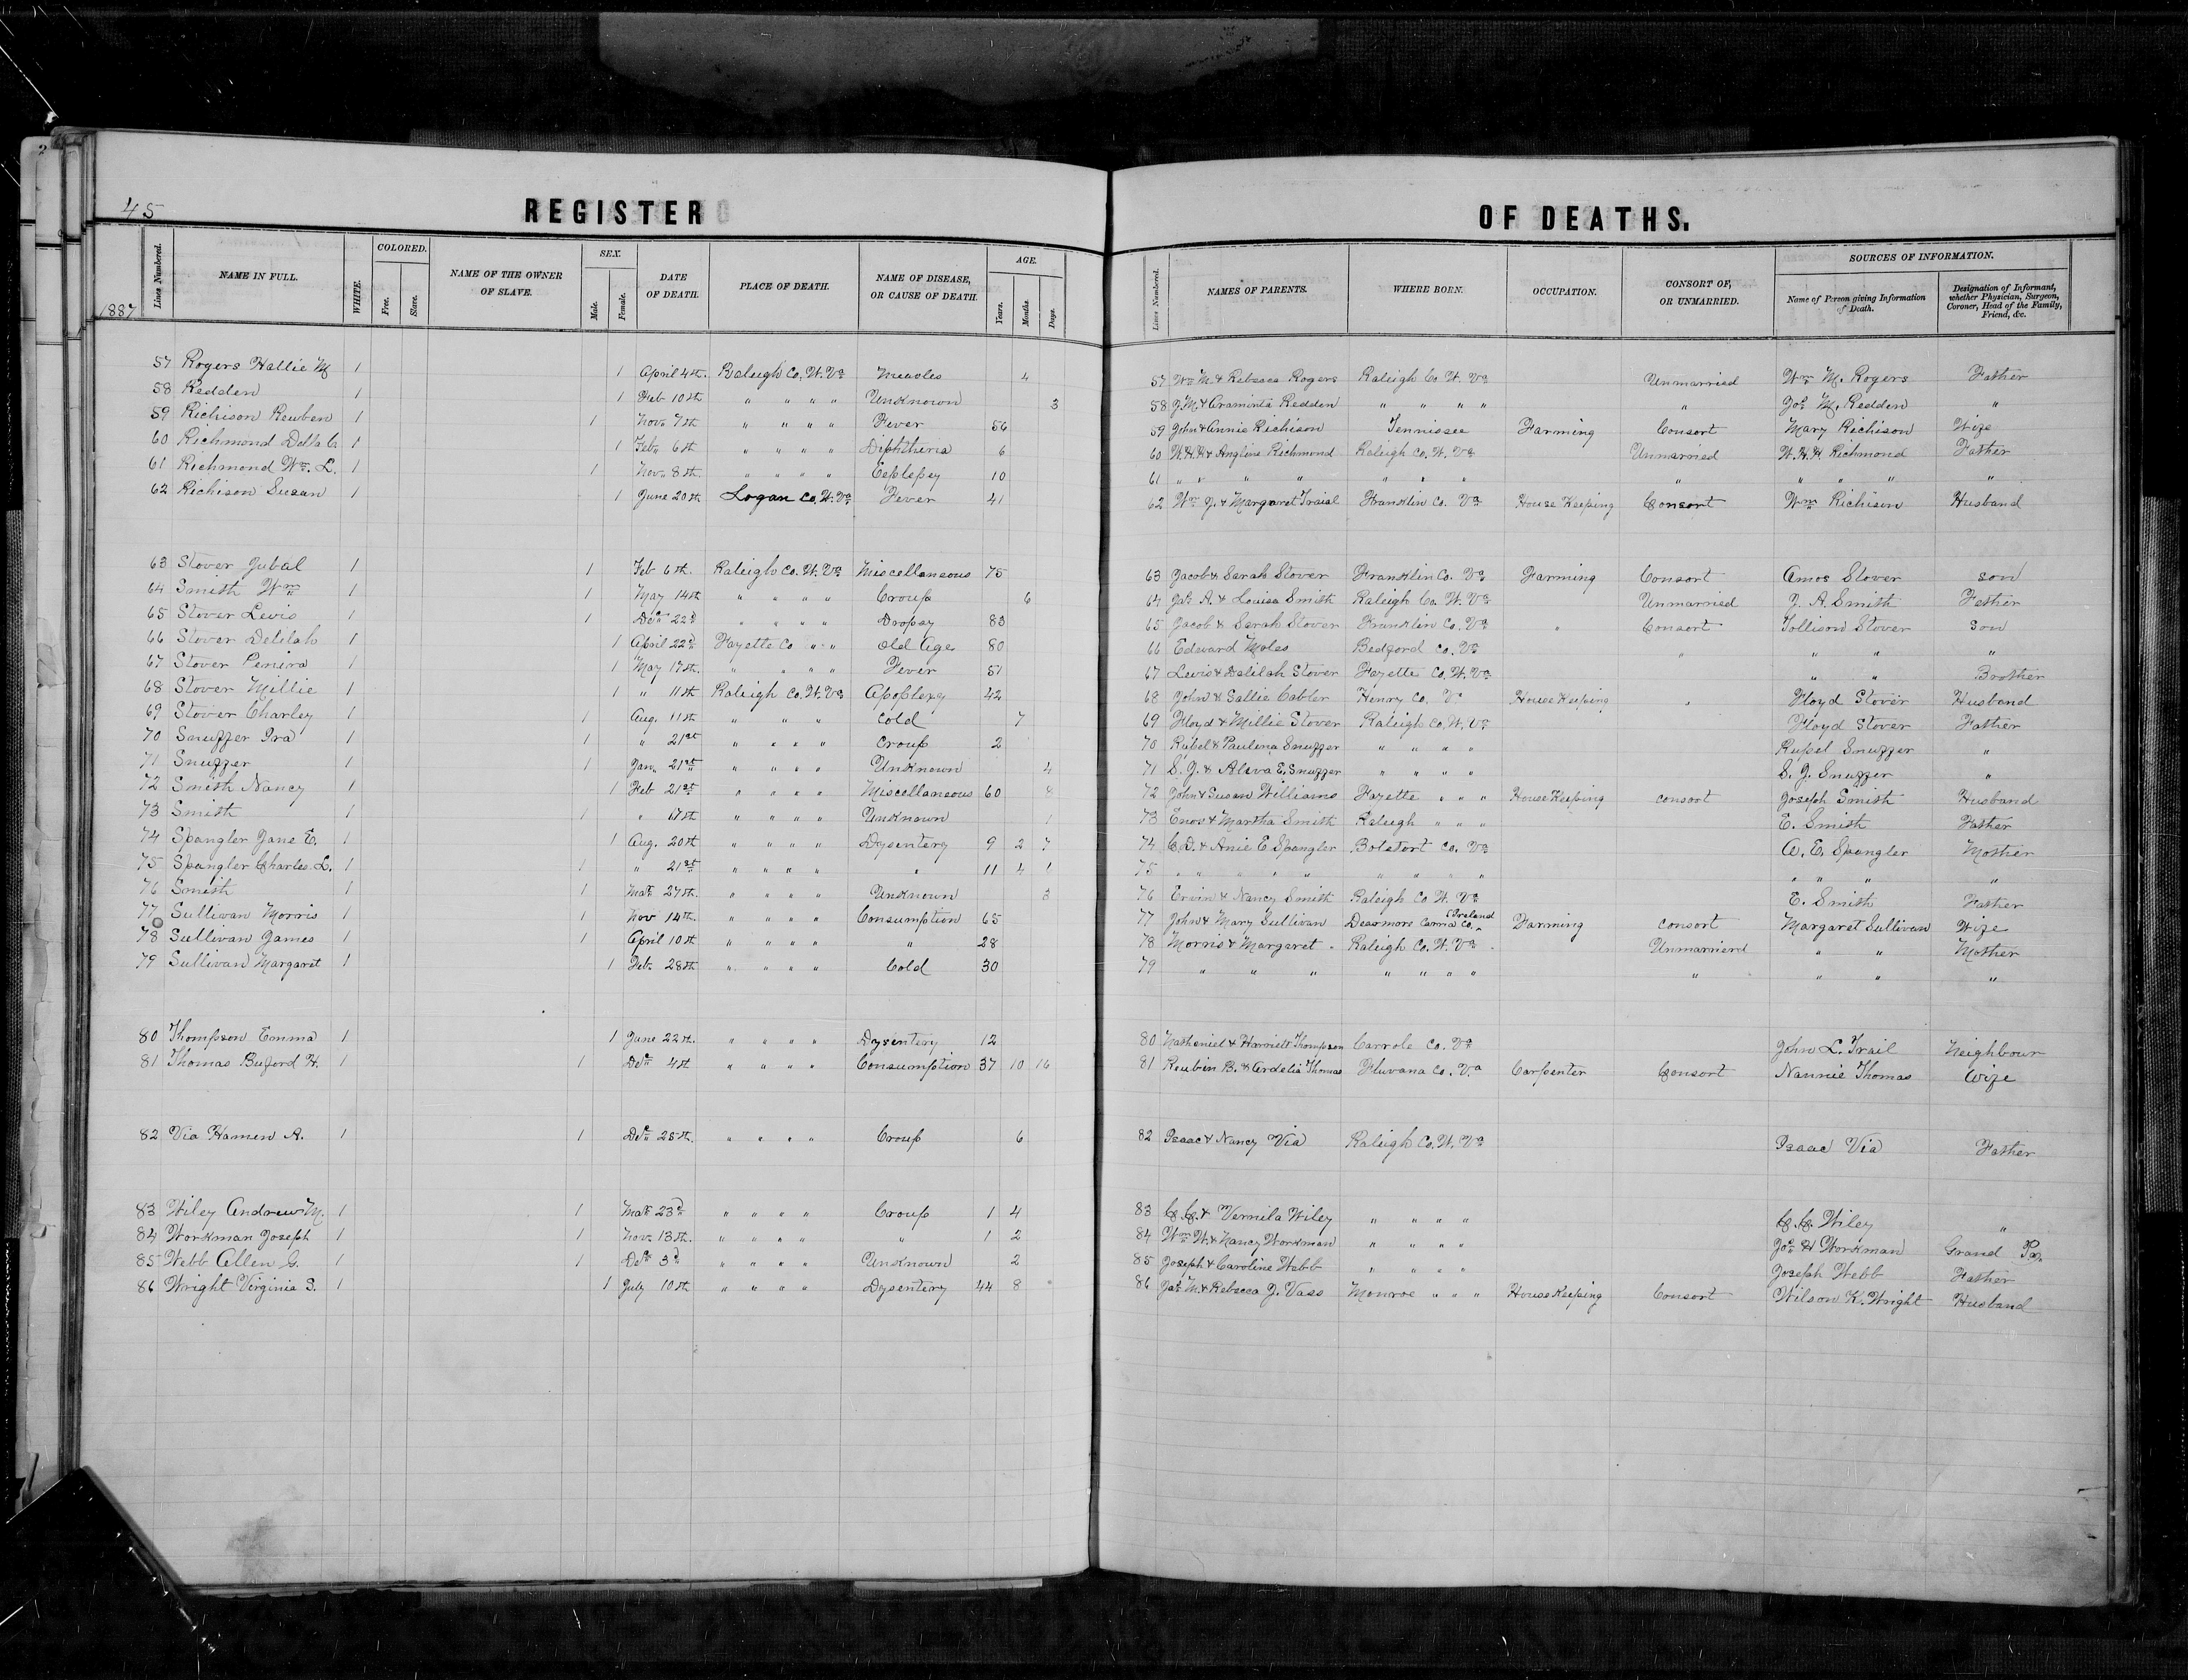 45
REGISTER OF DEATHS.
1887
Lines Numbered. NAME IN FULL. WHITE. COLORED. Free. Slave. NAME OF THE OWNER OF SLAVE. SEX. Male. Female. DATE OF DEATH. PLACE OF DEATH. NAME OF DISEASE, OR CAUSE OF DEATH. AGE. Years. Months. Days. Lines Numbered. NAMES OF PARENTS. WHERE BORN. OCCUPATION. CONSORT OF, OR UNMARRIED. SOURCES OF INFORMATION. Name of Person giving Information of Death. Designation of Informant, whether Physician, Surgeon, Coroner, Head of the Family, Friend, &c.
57 Rogers Hallie M 1 1 April 4th. Raleigh Co. W. Va Measles 4 57 Wm M. & Rebecca Rogers Raleigh Co W. Va Unmarried Wm M. Rogers Father
58 Redden 1 1 Feb 10th " " " " Unknown 3 58 J. M. & Araminta Redden " " " " " Jos M. Redden "
59 Richison Reuben 1 1 Nov. 7th " " " " Fever 56 59 John & Annie Richison Tennissee Farming Consort Mary Richison Wife
60 Richmond Della C. 1 1 Feb. 6th " " " " Diphtheria 6 60 W. H. H. & Angline Richmond Raleigh Co. W. Va Unmarried W. H. H. Richmond Father
61 Richmond Wm. L. 1 1 Nov. 8th " " " " Eeplepsy 10 61 " " " " " " " " " " " "
62 Richison Susan 1 1 June 20th Logan Co. W. Va Fever 41 62 Wm J. & Margaret Traial Franklin Co. Va House Keeping Consort Wm Richison Husband
63 Stover Jubal 1 1 Feb 6th. Raleigh Co. W. Va Miscellaneous 75 63 Jacob & Sarah Stover Franklin Co. Va Farming Consort Amos Stover son
64 Smith Wm 1 1 May 14th " " " " Croup 6 64 Jas A. & Louisa Smith Raleigh Co. W. Va Unmarried J. A. Smith Father
65 Stover Lewis 1 1 Dec 22d " " " " Dropsy 83 65 Jacob & Sarah Stover Franklin Co. Va " Consort Tollison Stover Son
66 Stover Delilah 1 1 April 22d Fayette Co " " Old Age 80 66 Edward Moles Bedford Co. Va " " " "
67 Stover Penira 1 1 May 17th. " " " " Fever 51 67 Lewis & Dalilah Stover Fayette Co. W. Va " " Brother
68 Stover Millie 1 1 " 11th Raleigh Co. W. Va Apoplexy 42 68 John & Sallie Cabler Henry Co. Va House Keeping " Floyd Stover Husband
69 Stover Charley 1 1 Aug. 11th " " " Cold 7 69 Floyd & Millie Stover Raleigh Co. W. Va Floyd Stover Father
70 Snuffer Ira 1 1 " 21st " " " " Croup 2 70 Rupel & Paulina Snuffer " " " " Rupel Snuffer "
71 Snuffer 1 1 Jan. 21st " " " " Unknown 4 71 S. J. & Aleva E. Snuffer " " " " S. J. Snuffer "
72 Smith Nancy 1 1 Feb 21st " " " " Miscellaneous 60 8 72 John & Susan Williams Fayette " " " House Keeping consort Joseph Smith Husband
73 Smith 1 1 " 17th " " " " Unknown 1 73 Enos & Martha Smith Raleigh " " " E. Smith Father
74 Spangler Jane E. 1 1 Aug. 20th " " " " Dysentery 9 2 7 74 C. D. & Anie E Spangler Botetort Co. Va A. E. Spangler Mother
75 Spangler Charles L. 1 1 " 21st " " " " " 11 4 1 75 " " " " " " " " " " " " "
76 Smith 1 1 Mar 27th. " " " " Unknown 3 76 Ervin & Nancy Smith Raleigh Co W. Va E. Smith Father
77 Sullivan Morris 1 1 Nov 14th. " " " " Consumption 65 77 John & Mary Sullivan Dearmore Carma Co. Ireland Farming consort Margaret Sullivan Wife
78 Sullivan James 1 1 April 10th " " " " " 28 78 Morris & Margaret " Raleigh Co. W. Va Unmarrierd " " Mother
79 Sullivan Margaret 1 1 Feb. 28th " " " " Cold 30 79 " " " " " " " " " " "
80 Thompson Emma 1 1 June 22th. " " " " Dysentery 12 80 Nathaniel & Harriett Thompson Carrole Co. Va John L. Trail Neighbour
81 Thomas Buford H. 1 1 Dec 4th " " " " Consumption 37 10 16 81 Reubin B. & Ardelia Thomas Fluvana Co. Va Carpenter Consort Nannie Thomas Wife
82 Via Hamen A. 1 1 Dec 25th. " " " " Croup 6 82 Isaac & Nancy Via Raleigh Co. W. Va Isaac Via Father
83 Wiley Andrew M. 1 1 Mar 23d " " " " Croup 1 4 83 C. C. & Vernila Wiley " " " " C. C. Wiley "
84 Workman Joseph 1 1 Nov. 13th. " " " " " 1 2 84 Wm W. & Nancy Workman " " " " Jos H Workman Grand Pa.
85 Webb Allen G. 1 1 Dec 3d " " " " Unknown 2 85 Joseph & Caroline Webb " " " " Joseph Webb Father
86 Wright Virginia S. 1 1 July 10th " " " " Dysentery 44 8 86 Jas M. & Rebecca J. Vass Monroe " " " House Keeping Consort Wilson K. Wright Husband